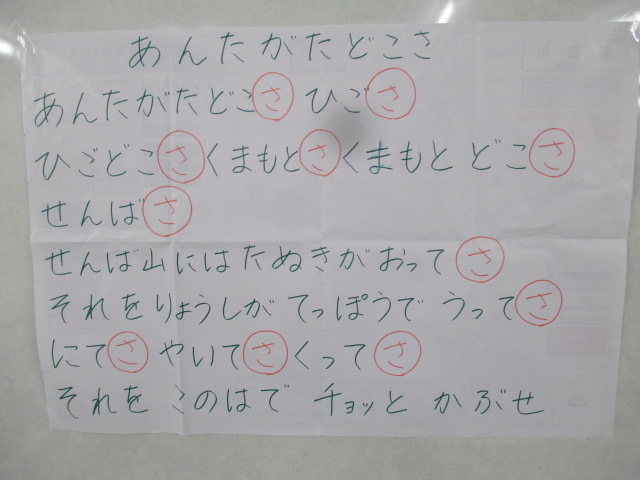 あんたがたどこさ
あんたがたどこさ ひごさ
ひごどこさくまもとさくまもと どこさ
せんばさ
せんば山にはたぬきがおってさ
それをりょうしが てっぽうで うってさ
にてさ やいてさくってさ
それを このはで チョッと かぶせ